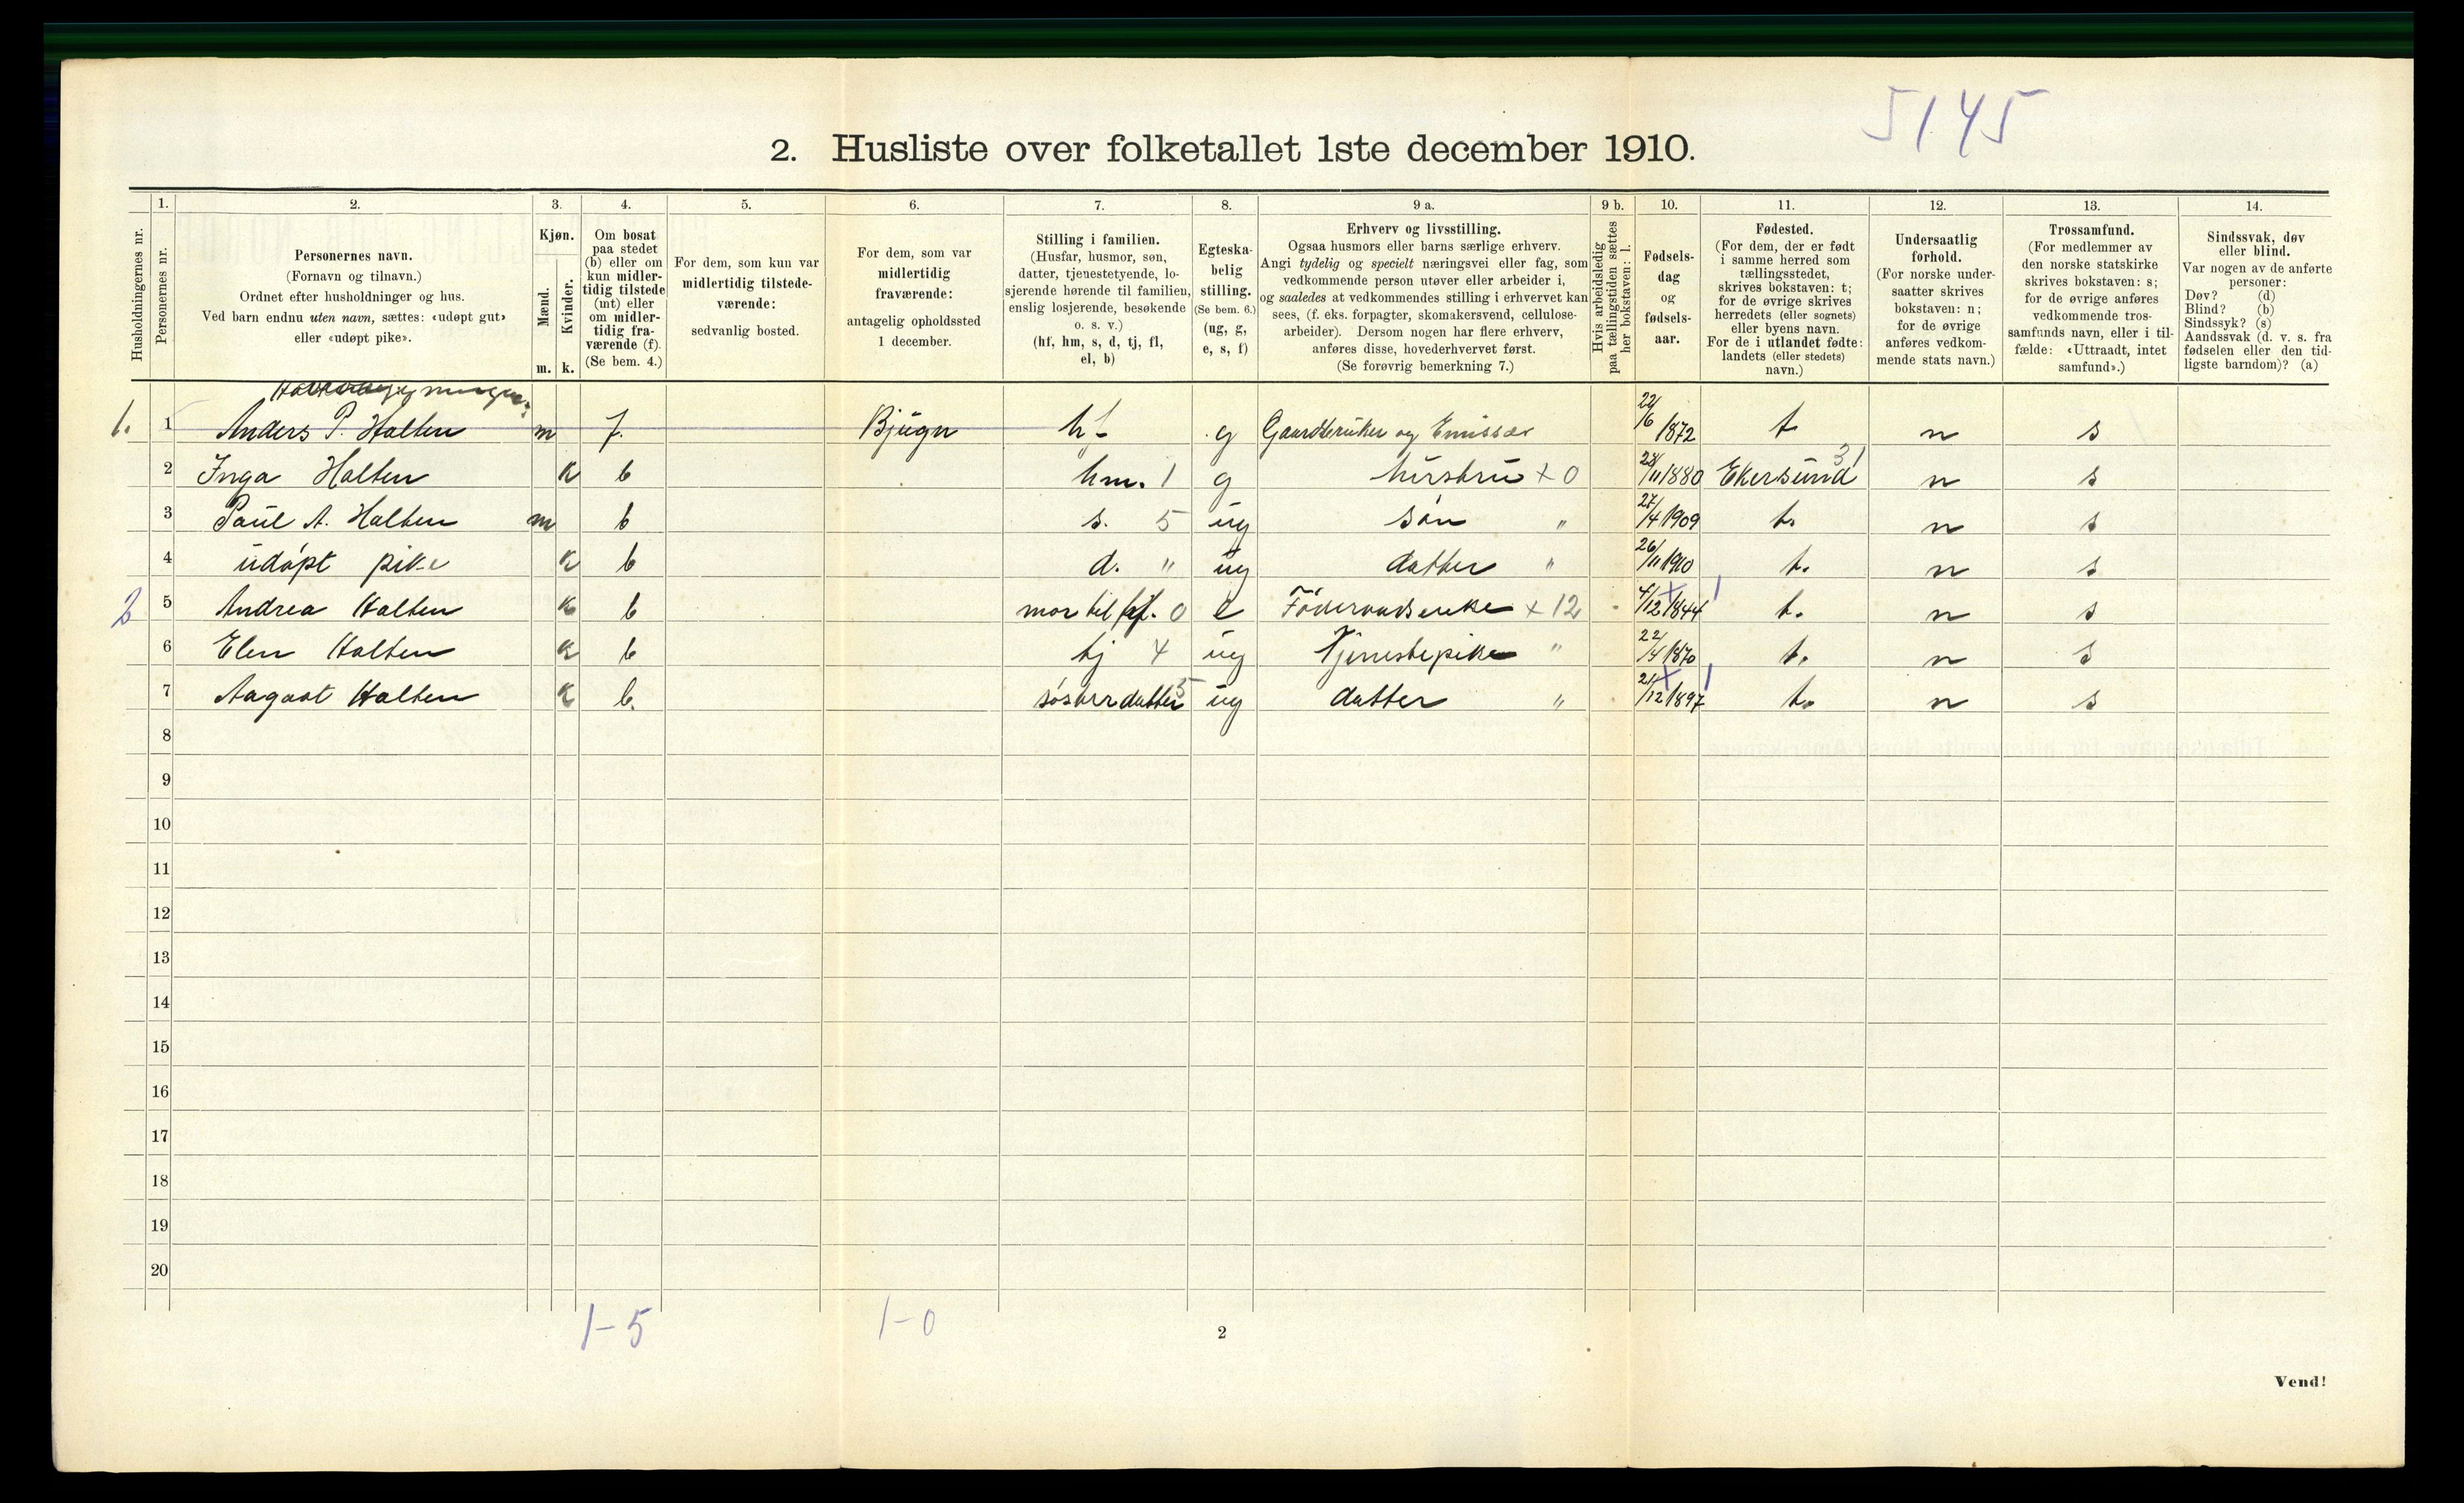 5145
2. Husliste over folketallet 1ste december 1910.
Husholdningernes nr.
1.
Personernes nr.
2.
Personernes navn.
(Fornavn og tilnavn.)
Ordnet efter husholdninger og hus.
Ved barn endnu uten navn, sættes: «udøpt gut»
eller «udøpt pike».
3.
Kjøn.
Mænd.
Kvinder.
m. k.
4.
Om bosat
paa stedet
(b) eller om
kun midler-
tidig tilstede
(mt) eller
om midler-
tidig fra-
værende (f).
(Se bem. 4.)
5.
For dem, som kun var
midlertidig tilstede-
værende:
sedvanlig bosted.
6.
For dem, som var
midlertidig
fraværende:
antagelig opholdssted
1 december.
7.
Stilling i familien.
(Husfar, husmor, søn,
datter, tjenestetyende, lo-
sjerende hørende til familien,
enslig losjerende, besøkende
o. s. v.)
(hf, hm, s, d, tj, fl,
el, b)
8.
Egteska-
belig
stilling.
(Se bem. 6.)
(ug, g,
e, s, f)
9 a.
Erhverv og livsstilling.
Ogsaa husmors eller barns særlige erhverv.
Angi tydelig og specielt næringsvei eller fag, som
vedkommende person utøver eller arbeider i,
og saaledes at vedkommendes stilling i erhvervet kan
sees, (f. eks. forpagter, skomakersvend, cellulose-
arbeider). Dersom nogen har flere erhverv,
anføres disse, hovederhvervet først.
(Se forøvrig bemerkning 7.)
9 b.
Hvis arbeidsledig
paa tællingstiden sættes
her bokstaven: l.
10.
Fødsels-
dag
og
fødsels-
aar.
11.
Fødested.
(For dem, der er født
i samme herred som
tællingsstedet,
skrives bokstaven: t;
for de øvrige skrives
herredets (eller sognets)
eller byens navn.
For de i utlandet fødte:
landets (eller stedets)
navn.)
12.
Undersaatlig
forhold.
(For norske under-
saatter skrives
bokstaven: n;
for de øvrige
anføres vedkom-
mende stats navn.)
13.
Trossamfund.
(For medlemmer av
den norske statskirke
skrives bokstaven: s;
for de øvrige anføres
vedkommende tros-
samfunds navn, eller i til-
fælde: «Uttraadt, intet
samfund».)
14.
Sindssvak, døv
eller blind.
Var nogen av de anførte
personer:
Døv? (d)
Blind? (b)
Sindssyk? (s)
Aandssvak (d. v. s. fra
fødselen eller den tid-
ligste barndom)? (a)
1. 1 Anders P. Halten m f. Bjugn hf g Gaardbruker og Emissær 22/6 1872 t. n s
2 Inga Halten k b hm. 1 g hustru × 0 28/11 1880 Ekersund 31 n s
3 Paul A. Halten m b s. 5 ug søn " 27/4 1909 t. n s
4 udøpt pike k b d. " ug datter " 26/11 1910 t. n s
2 5 Andrea Halten k b mor til hf. 0 e Föderaadsenke × 12 4/12 1844 t. n s
6 Elen Halten k b tj 4 ug Tjenestepike " 22/4 1870 t. n s
7 Aagaat Halten k b. søsterdatter 5 ug datter " 21/12 1897 t. n s
8
9
10
11
12
13
14
15
16
17
18
19
20
1-5 1-0
2
Vend!